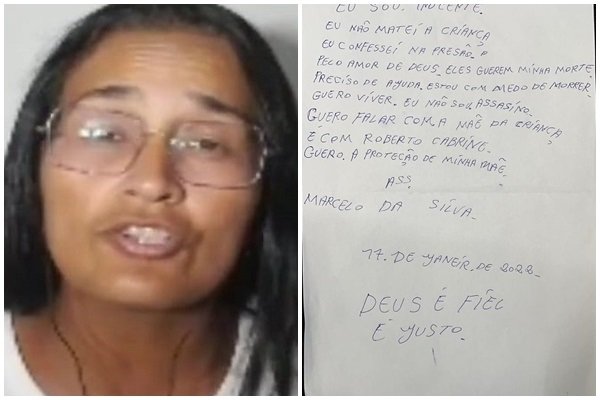 EU SOU. INOCENTE.
EU NÃO MATEI A CRIANÇA
EU CONFESSEI NA PRESÃO.
PELO AMOR DE DEUS. ELES GUEREM MINHA MORTE.
PRECISO DE AYUDA. ESTOU COM MEDO DE MORRER.
GUERO VIVER. EU NÃO SOU ASSASINO.
GUERO FALAR COM A MÃE DA CRIANÇA
E COM ROBERTO CABRINE.
GUERO. A PROTEÇÃO DE MINHA MÃE.
ASS.
MARCELO DA SILVA.
17. DE YANEIR. DE 2022.
DEUS É FIEL
E YUSTO.